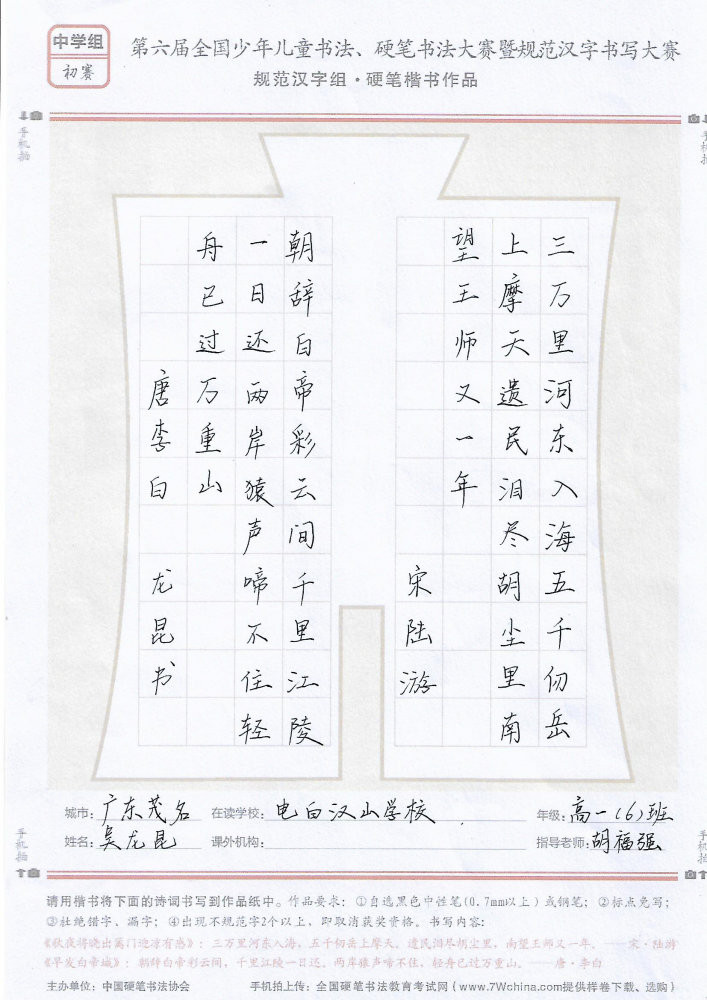 中学组
初赛
第六届全国少年儿童书法、硬笔书法大赛暨规范汉字书写大赛
规范汉字组·硬笔楷书作品
手机拍
手机拍
三万里河东入海五千仞岳
上摩天遗民泪尽胡尘里南
望王师又一年
宋陆游
朝辞白帝彩云间千里江陵
一日还两岸猿声啼不住轻
舟已过万重山
唐李白 龙昆书
城市：广东茂名 在读学校：电白汉山学校 年级：高一（6）班
姓名：吴龙昆 课外机构： 指导老师：胡福强
手机拍
手机拍
请用楷书将下面的诗词书写到作品纸中。作品要求：①自选黑色中性笔(0.7mm以上）或钢笔；②标点免写；
③杜绝错字、漏字；④出现不规范字2个以上，即取消获奖资格。书写内容：
《秋夜将晓出篱门迎凉有感》：三万里河东入海，五千仞岳上摩天。遗民泪尽胡尘里，南望王师又一年。——宋·陆游
《早发白帝城》：朝辞白帝彩云间，千里江陵一日还。两岸猿声啼不住，轻舟已过万重山。——唐·李白
主办单位：中国硬笔书法协会 手机拍上传：全国硬笔书法教育考试网（www.7Wchina.com提供样卷下载、选购）